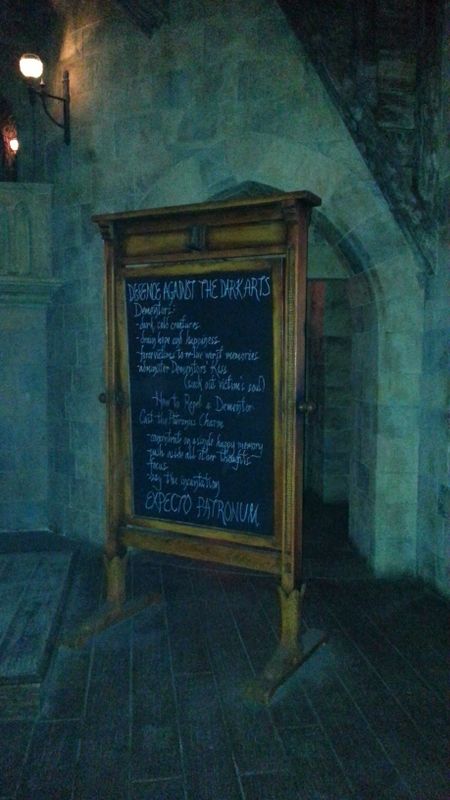 DEFENCE AGAINST THE DARK ARTS
Dementors:
-dark, cold creatures
-drain hope and happiness
-force victims to re-live worst memories
-administer Dementors Kiss
(suck out victim's soul)
How to Repel a Dementor
Cast the Patronus Charm
-concentrate on a single happy memory
-push aside all other thoughts
-focus
-say the incantation
EXPECTO PATRONUM